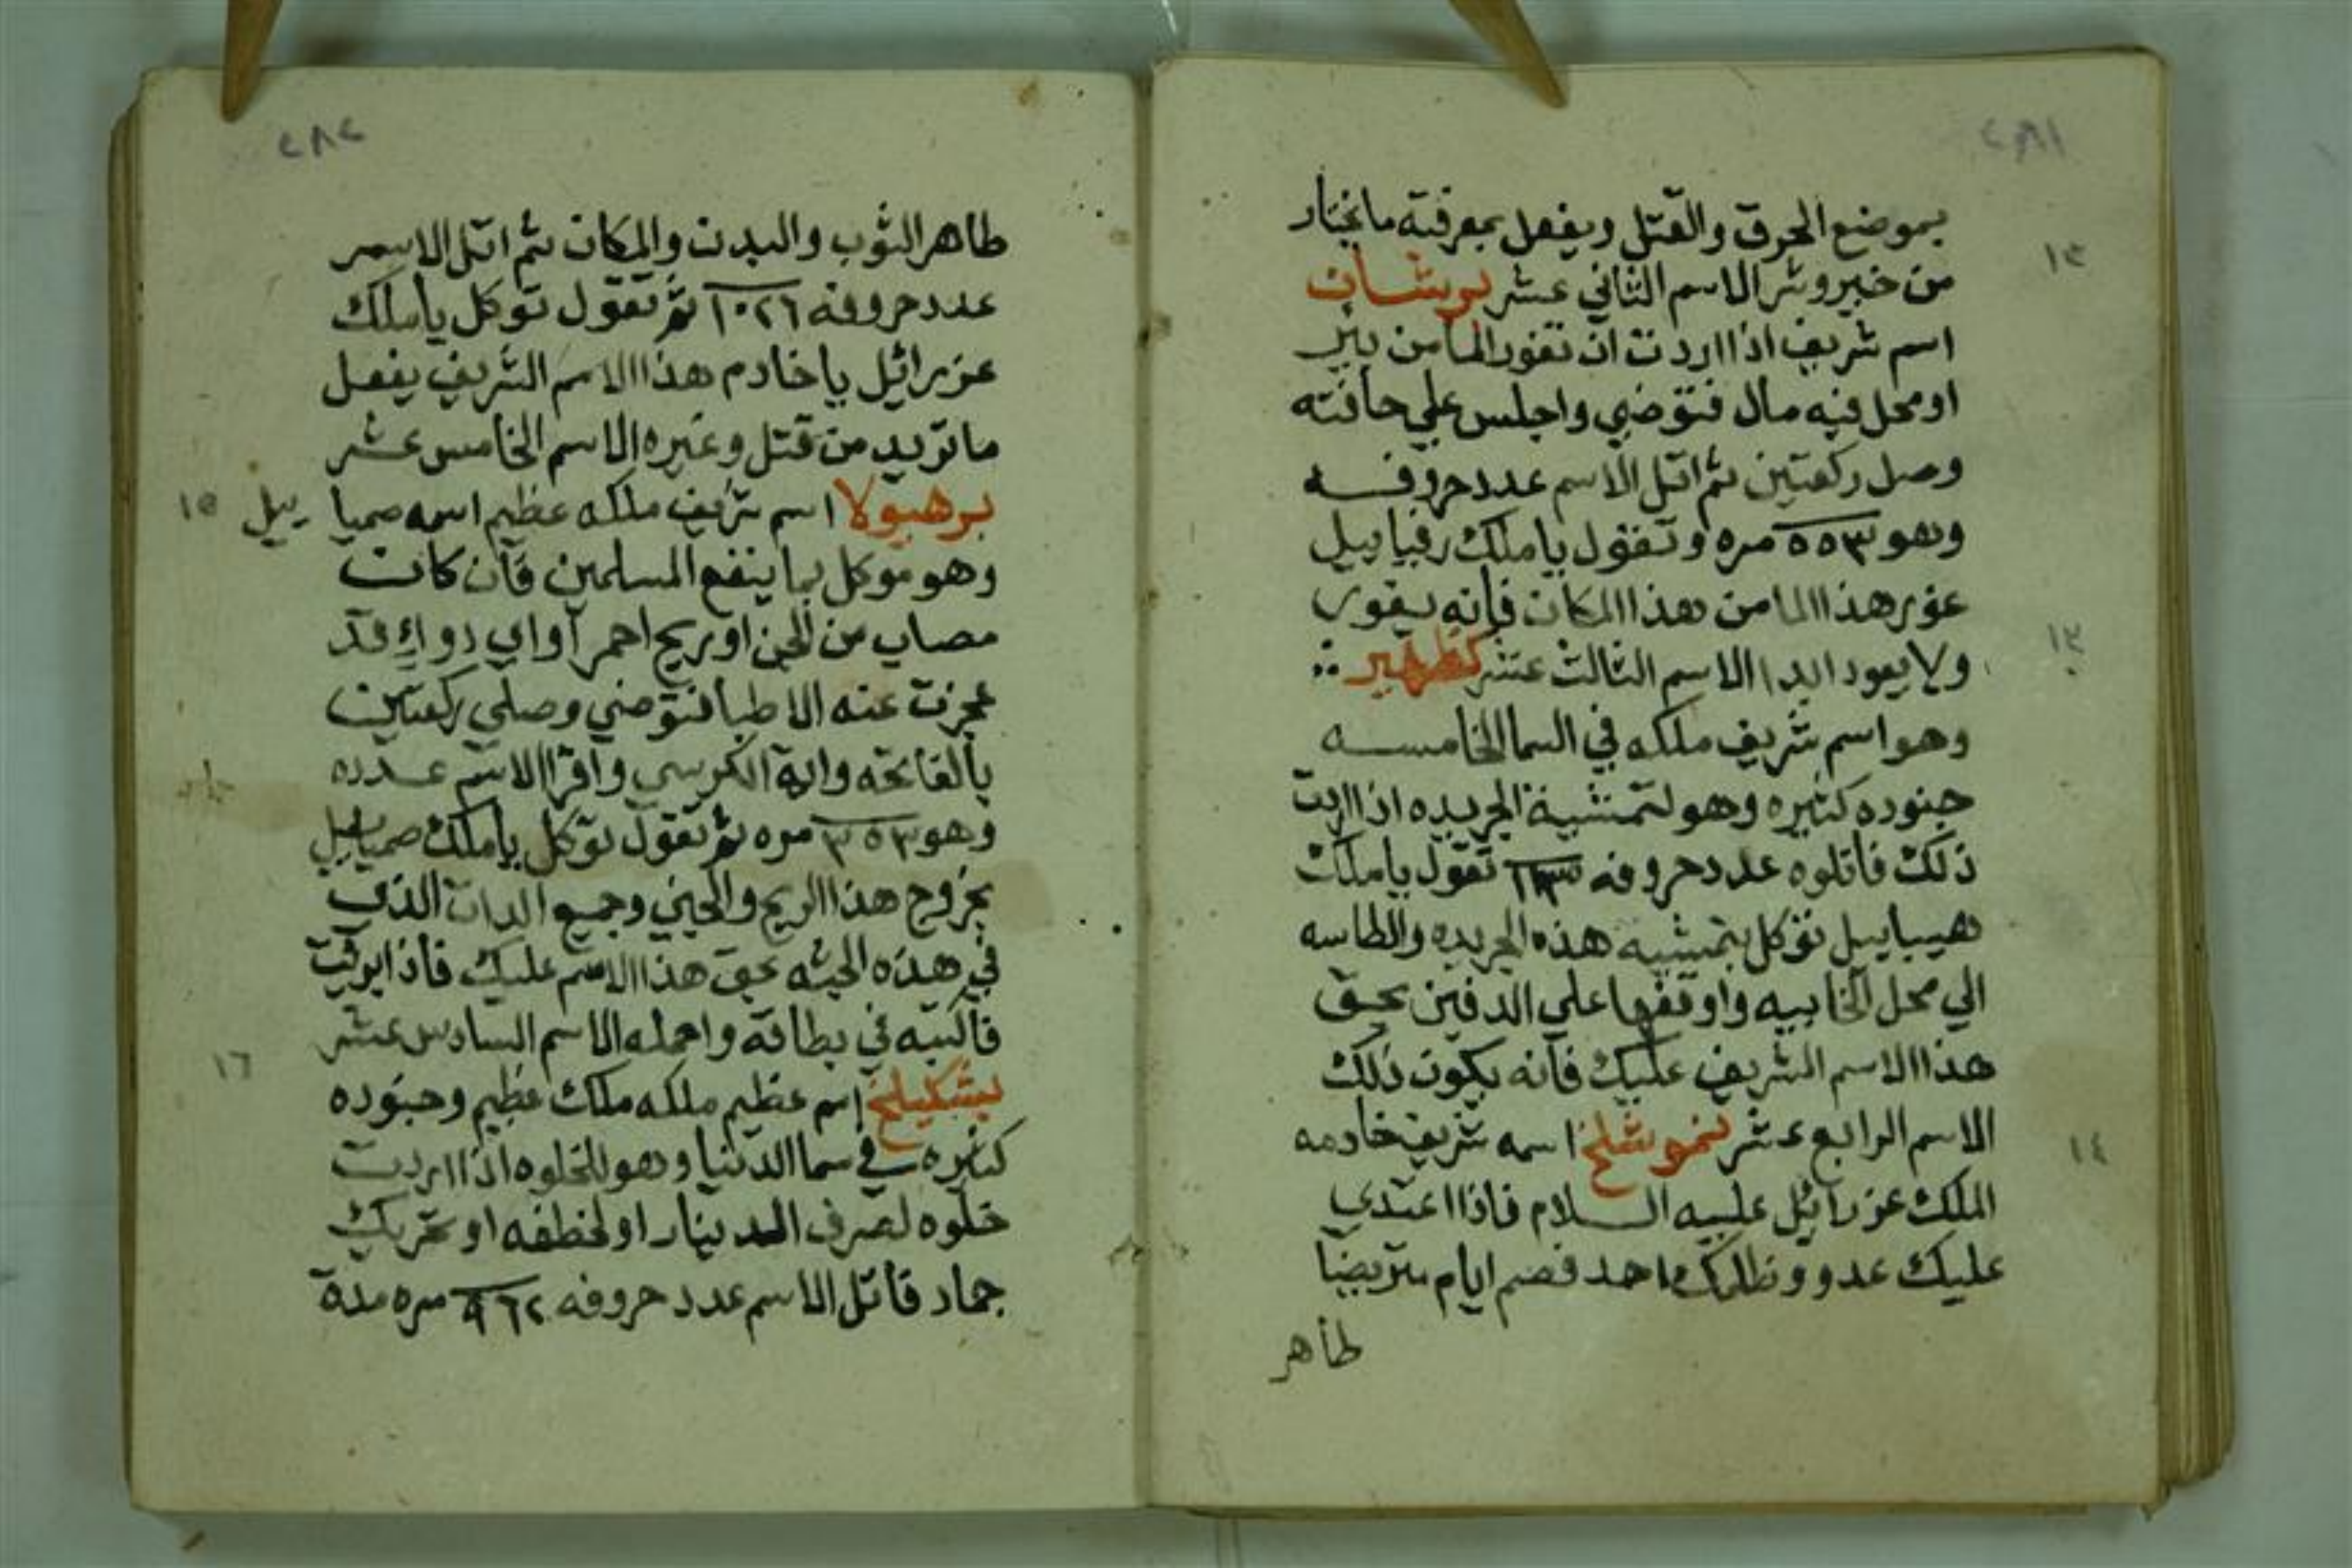 ٢٨١
بموضع الحرق والقتل ويفعل بمعرفته ما يختار
١٢
من خير وشر الاسم الثاني عشر برشان
اسم شريف اذا اردت ان تغور الما من بير
او محل فيه مال فتوضي واجلس علي حافته
وصل ركعتين ثم اتل الاسم عدد حروفه
وهو ٥٥٣ مره وتقول يا ملك رفياييل
غور هذا الما من هذا المكان فانه يغور
١٣
ولا يعود ابدا الاسم الثالث عشر كظهير
وهو اسم شريف ملكه في السما الخامسه
جنوده كثيره وهو لتمشية الجريده اذا اردت
ذلك فاتلوه عدد حروفه تقول يا ملك
هيباييل توكل بتمشية هذه الجريده والطاسه
الي محل الخابيه واوقفها علي الدفين بحق
هذا الاسم الشريف عليك فانه يكون ذلك
١٤
الاسم الرابع عشر نموشلخ اسمه شريف خادمه
الملك عزرائيل عليه السلام فاذا اعتدي
عليك عدو وظلمك احد فصم ايام
طاهر
٢٨٢
طاهر الثوب والبدن والمكان ثم اتل الاسم
عدد حروفه ١٠٢٦ ثم تقول توكل يا ملك
عزرائيل يا خادم هذا الاسم الشريف يفعل
ما تريد من قتل وغيره الاسم الخامس عشر
١٥
برهيولا اسم شريف ملكه عظيم اسمه صمياييل
وهو موكل بما ينفع المسلمين فان كان
مصاب من الجن او ريح احمر او اي دواء قد
عجزت عنه الاطبا فتوضي وصلي ركعتين
بالفاتحه واية الكرسي واقرا الاسم عدده
وهو ٣٥٣ مره ثم تقول توكل يا ملك صمياييل
بخروج هذا الريح والجني وجميع الدات الذي
في هذه الجثه بحق هذا الاسم عليك فاذا
فاكتبه في بطاقة واحمله الاسم السادس عشر
١٦
بشكيلخ اسم عظيم ملكه ملك عظيم وجنوده
كثيره في سما الدنيا وهو للخلوه اذا اردت
خلوه لصرف الدينار او لخطفه او تحريك
جماد فاتل الاسم عدد حروفه ٩٦٢ مره مدة